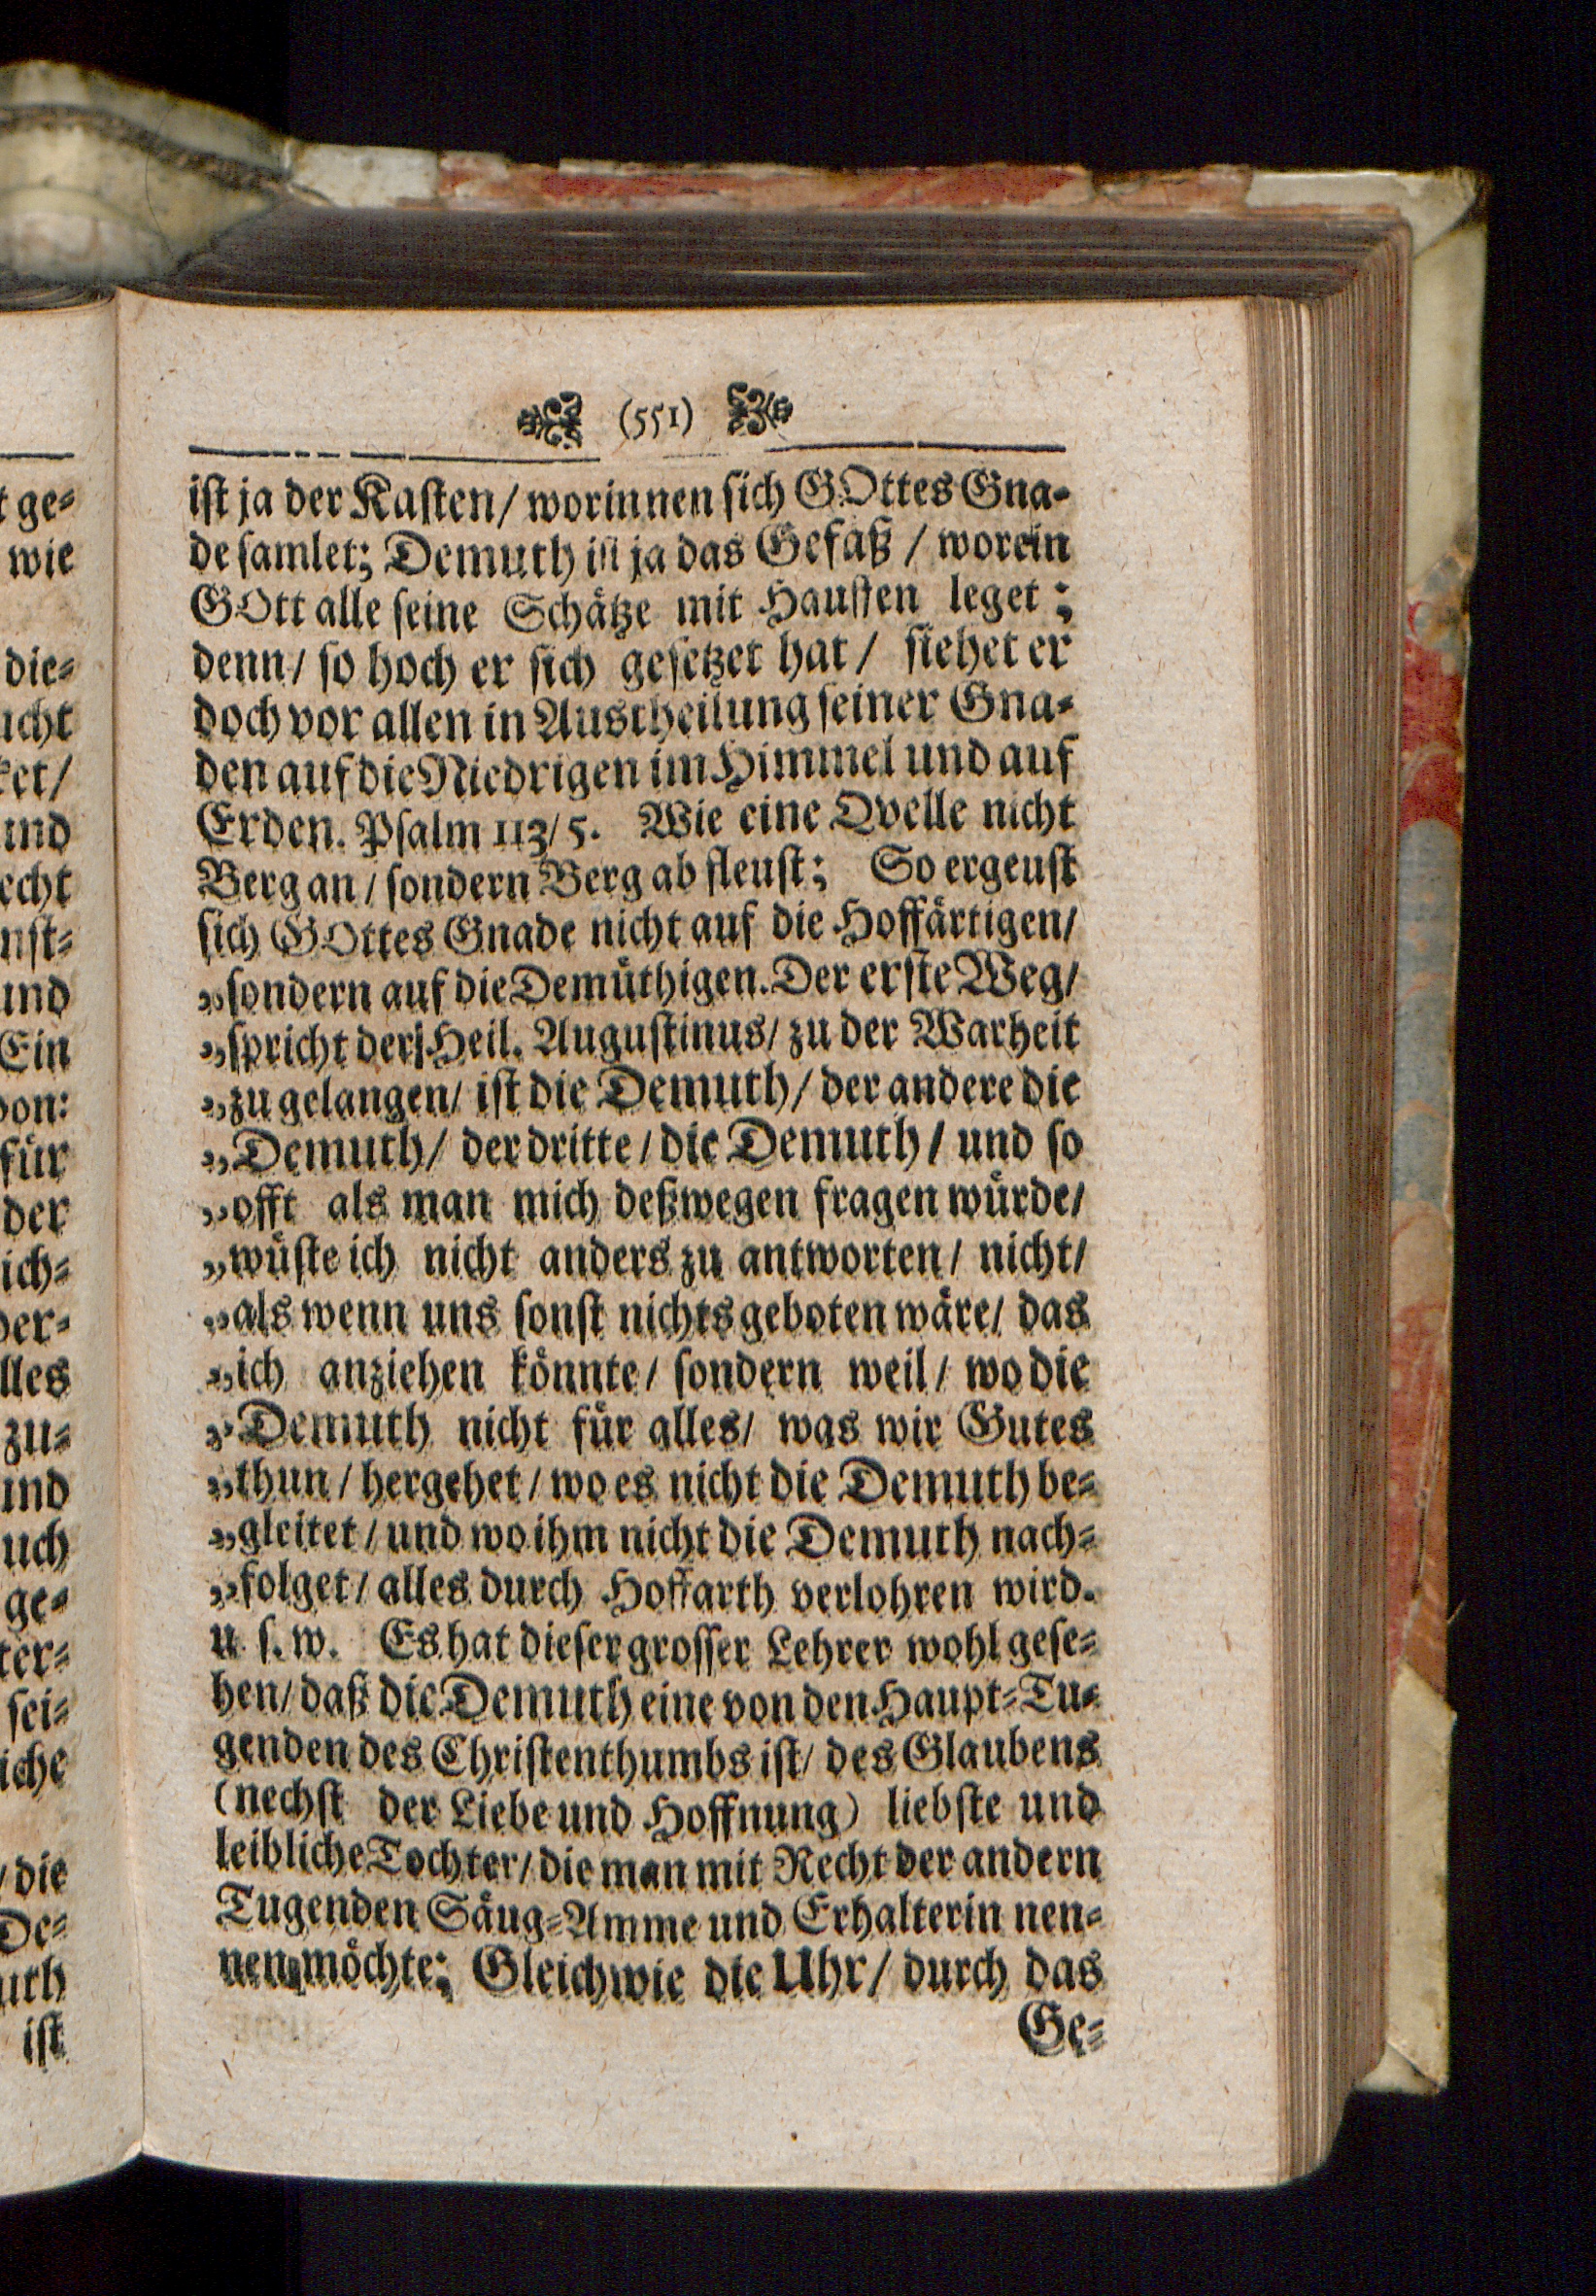 (551)
ist ja der Kasten/ worinnen sich GOttes Gna-
de samlet; Demuth ist ja das Gefäß / worein
GOtt alle seine Schätze mit Hausten leget;
denn/ so hoch er sich gesetzet hat/ siehet er
doch vor allen in Austheilung seiner Gna-
den auf die Niedrigen im Himmel und auf
Erden. Psalm 113/5. Wie eine Qvelle nicht
Berg an / sondern Berg ab fleust; So ergeust
sich GOttes Gnade nicht auf die Hoffärtigen/
„sondern auf die Demüthigen. Der erste Weg/
„spricht der Heil. Augustinus/ zu der Warheit
„zu gelangen/ ist die Demuth/ der andere die
„Demuth/ der dritte/ die Demuth/ und so
„offt als man mich deßwegen fragen würde/
„wüste ich nicht anders zu antworten/ nicht/
„als wenn uns sonst nichts geboten wäre/ das
„ich anziehen könnte/ sondern weil/ wo die
„Demuth nicht für alles/ was wir Gutes
„thun/ hergehet/ wo es nicht die Demuth be-
„gleitet/ und wo ihm nicht die Demuth nach-
„folget/ alles durch Hoffarth verlohren wird.
u s.w. Es hat dieser grosser Lehrer wohl gese-
hen/ daß die Demuth eine von den Haupt-Tu-
genden des Christenthumbs ist/ des Glaubens
(nechst der Liebe und Hoffnung) liebste und
leibliche Tochter/ die man mit Recht der andern
Tugenden Säug-Amme und Erhalterin nen-
nen möchte; Gleichwie die Uhr/ durch das
Ge-
ge-
wie
die-
und
und
Ein
für
der
zu-
und
ge-
sei-
die
De-
ist